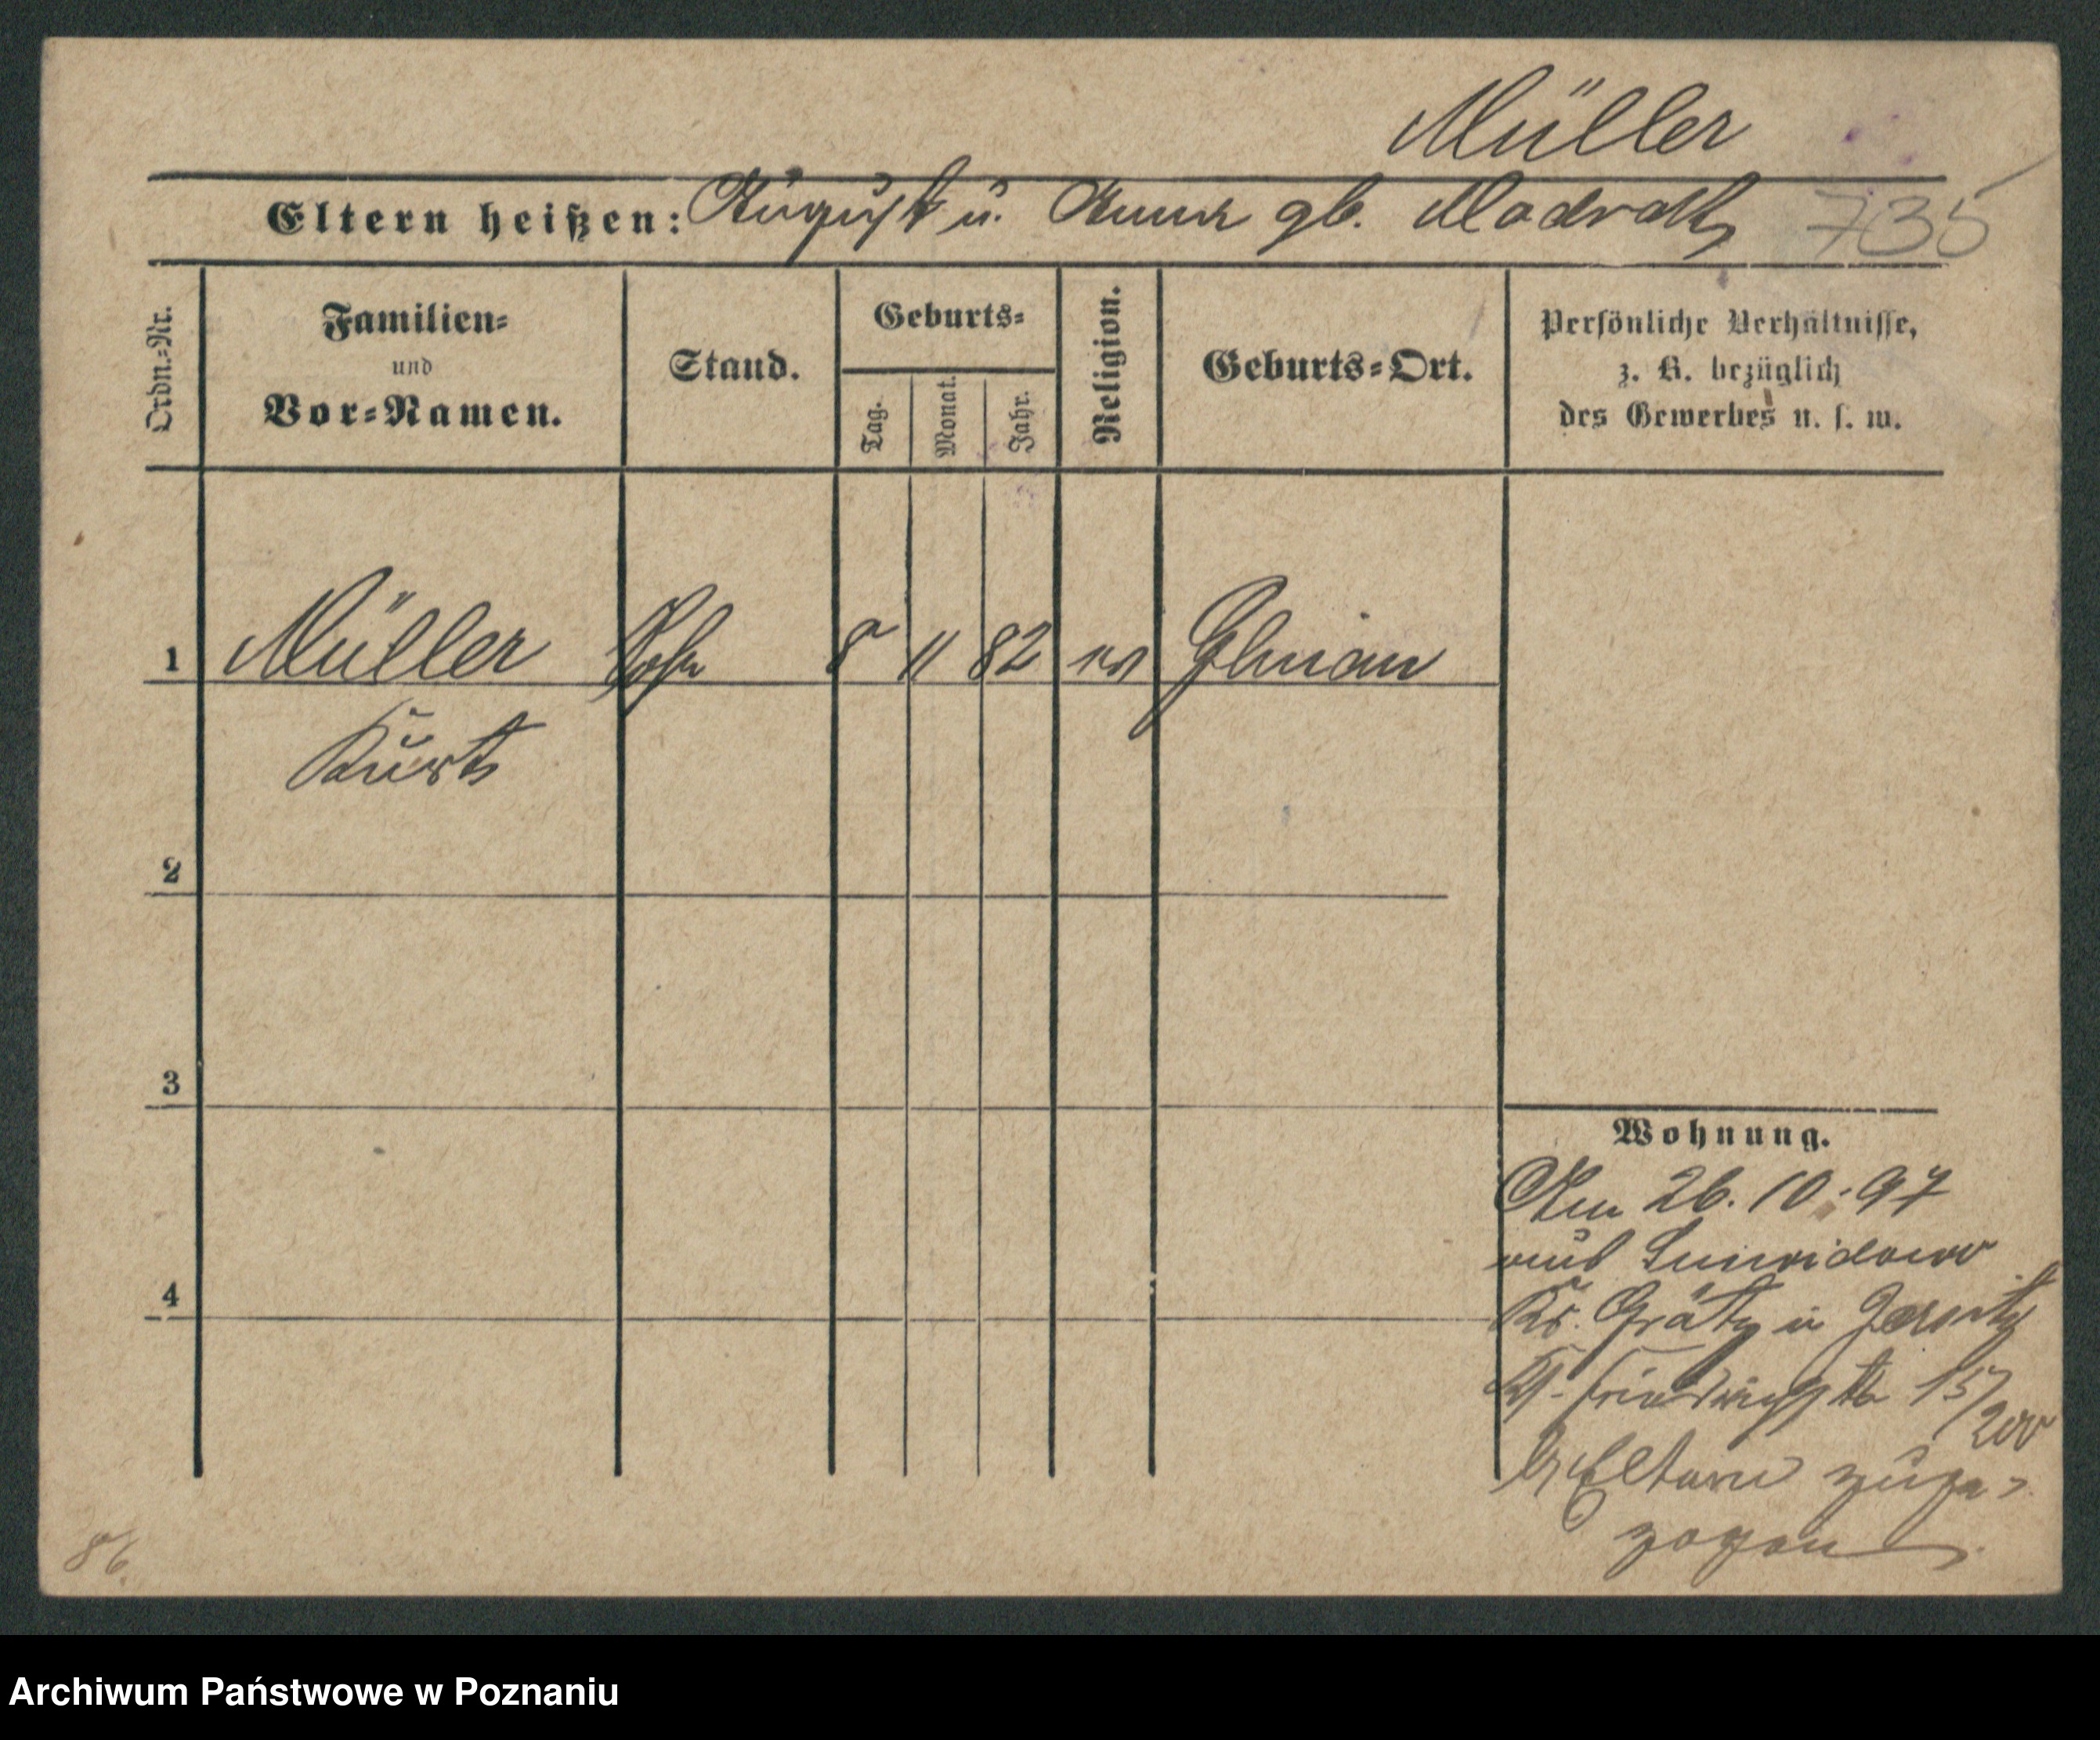 Müller
Eltern heißen: August u. Anna gb. Modrath 735
Ordn.=Nr.
Familien=
und
Vor=Namen.
Stand.
Geburts=
Tag.
Monat.
Jahr.
Religion.
Geburts=Ort.
Persönliche Verhältnisse,
z. B. bezüglich
des Gewerbes u. s. w.
1 Müller Sohn 8 11 82 ev
Kurt
2
3
4
Wohnung.
Am 26. 10. 97
aus
Kr. Grätz in Jersitz
15/
200
Eltern zuge=
zogen
86
Archiwum Państwowe w Poznaniu